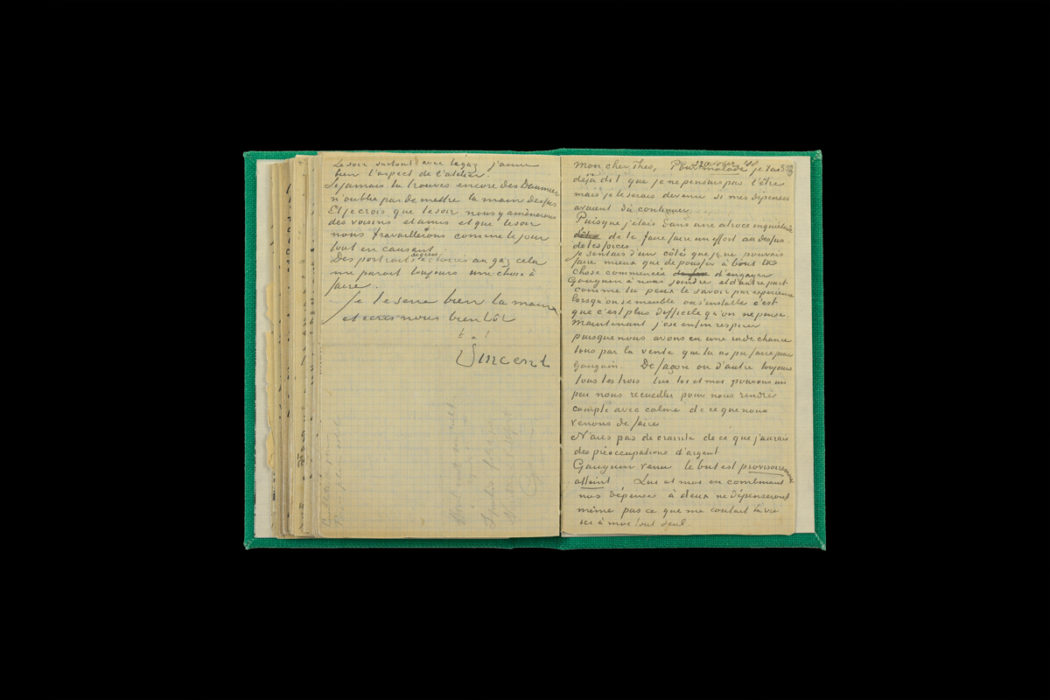 Le soir surtout avec le gaz j'aime
bien l'aspect de l'atelier.
Si jamais tu trouves encore des Daumier
n'oublie pas de mettre la main dessus
Et je crois que le soir nous y amènerons
des voisins et amis et que le soir
nous travaillerons comme le jour
tout en causant.
Des portraits éclairés au gaz cela
me parait toujours une chose à
faire.
Je te serre bien la main
et écris nous bientôt
t. à t.
Vincent
Mon cher Theo, Pour malade je t'ai
déjà dit que je ne pensais pas l'être
mais je le serais devenu si mes dépenses
avaient dû continuer.
Puisque j'étais dans une atroce inquiétude
de te faire faire un effort au dessus
de tes forces.
Je sentais d'un côté que je ne pouvais
faire mieux que de pousser à bout la
chose commencée d'engager
Gauguin à nous joindre et d'autre part
comme tu peux le savoir par expérience
lorsqu'on se meuble ou s'installe c'est
que c'est plus difficile qu'on ne pense.
Maintenant j'ose enfin respirer
puisque nous avons eu une rude chance
tous par la vente que tu as pu faire pour
Gauguin. De façon ou d'autre toujours
tous les trois lui toi et moi pouvons un
peu nous recueillir pour nous rendre
compte avec calme de ce que nous
venons de faire
N'aies pas de crainte de ce que j'aurais
des préoccupations d'argent
Gauguin venu le but est provisoirement
atteint Lui et moi en combinant
nos dépenses à deux ne dépenserons
même pas ce que me coutait la vie
ici à moi tout seul.